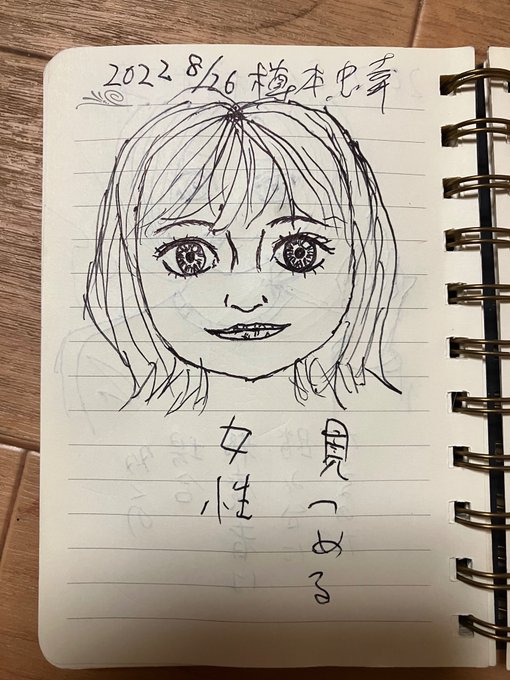 2022 8/26 樽本忠幸
見つめる
女性